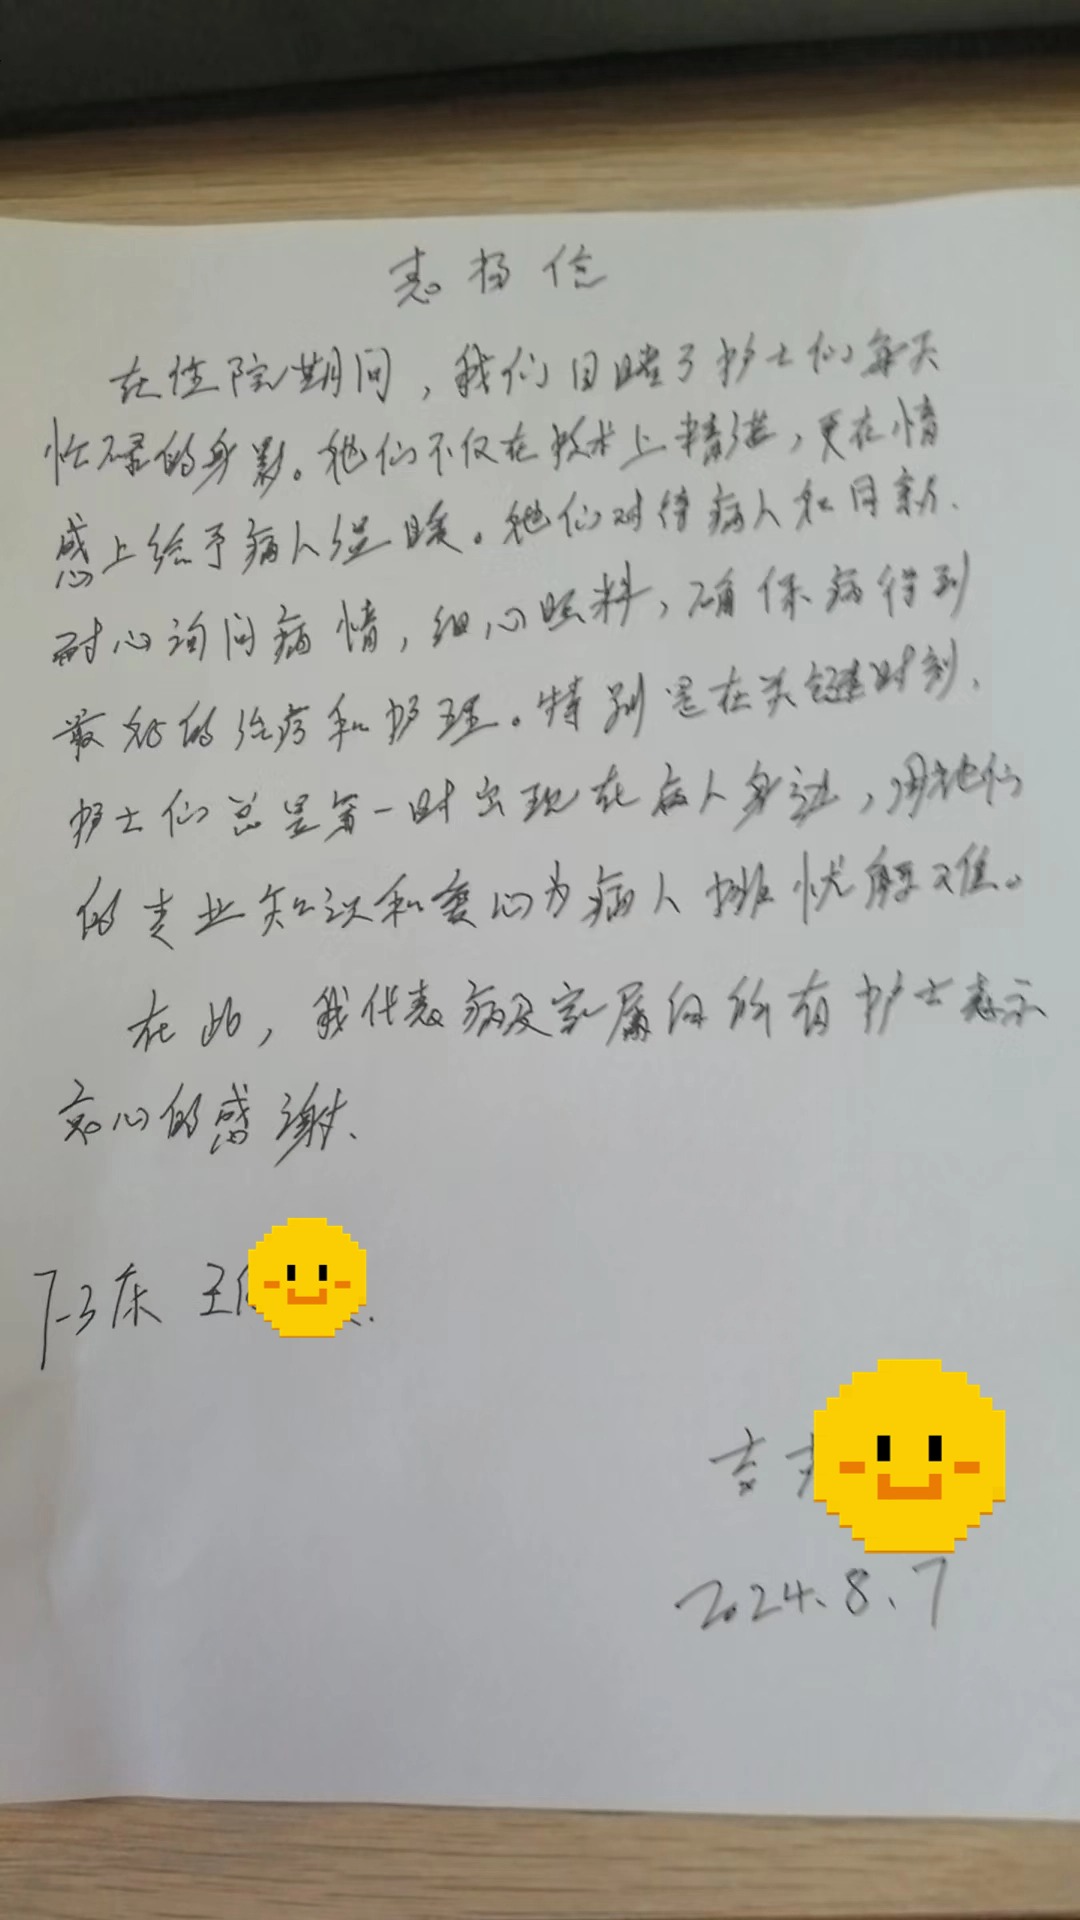 表扬信
在住院期间，我们目睹了护士们每天
忙碌的身影。他们不仅在技术上精进，更在情
感上给予病人温暖。他们对待病人和同亲、
耐心询问病情，细心照料，确保病得到
最好的治疗和护理。特别是在关键时刻、
护士们总是第一时出现在病人身边，用他们
的专业知识和爱心为病人排忧解难。
在此，我代表病及家属向所有护士表示
衷心的感谢、
7-3床 王
2024.8.7